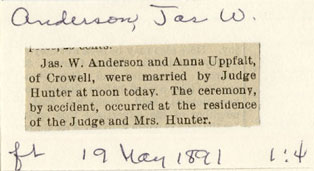 Anderson, Jas W.
Jas. W. Anderson and Anna Uppfalt,
of Crowell, were married by Judge
Hunter at noon today. The ceremony,
by accident, occurred at the residence
of the Judge and Mrs. Hunter.
ft 19 May 1891 1:4